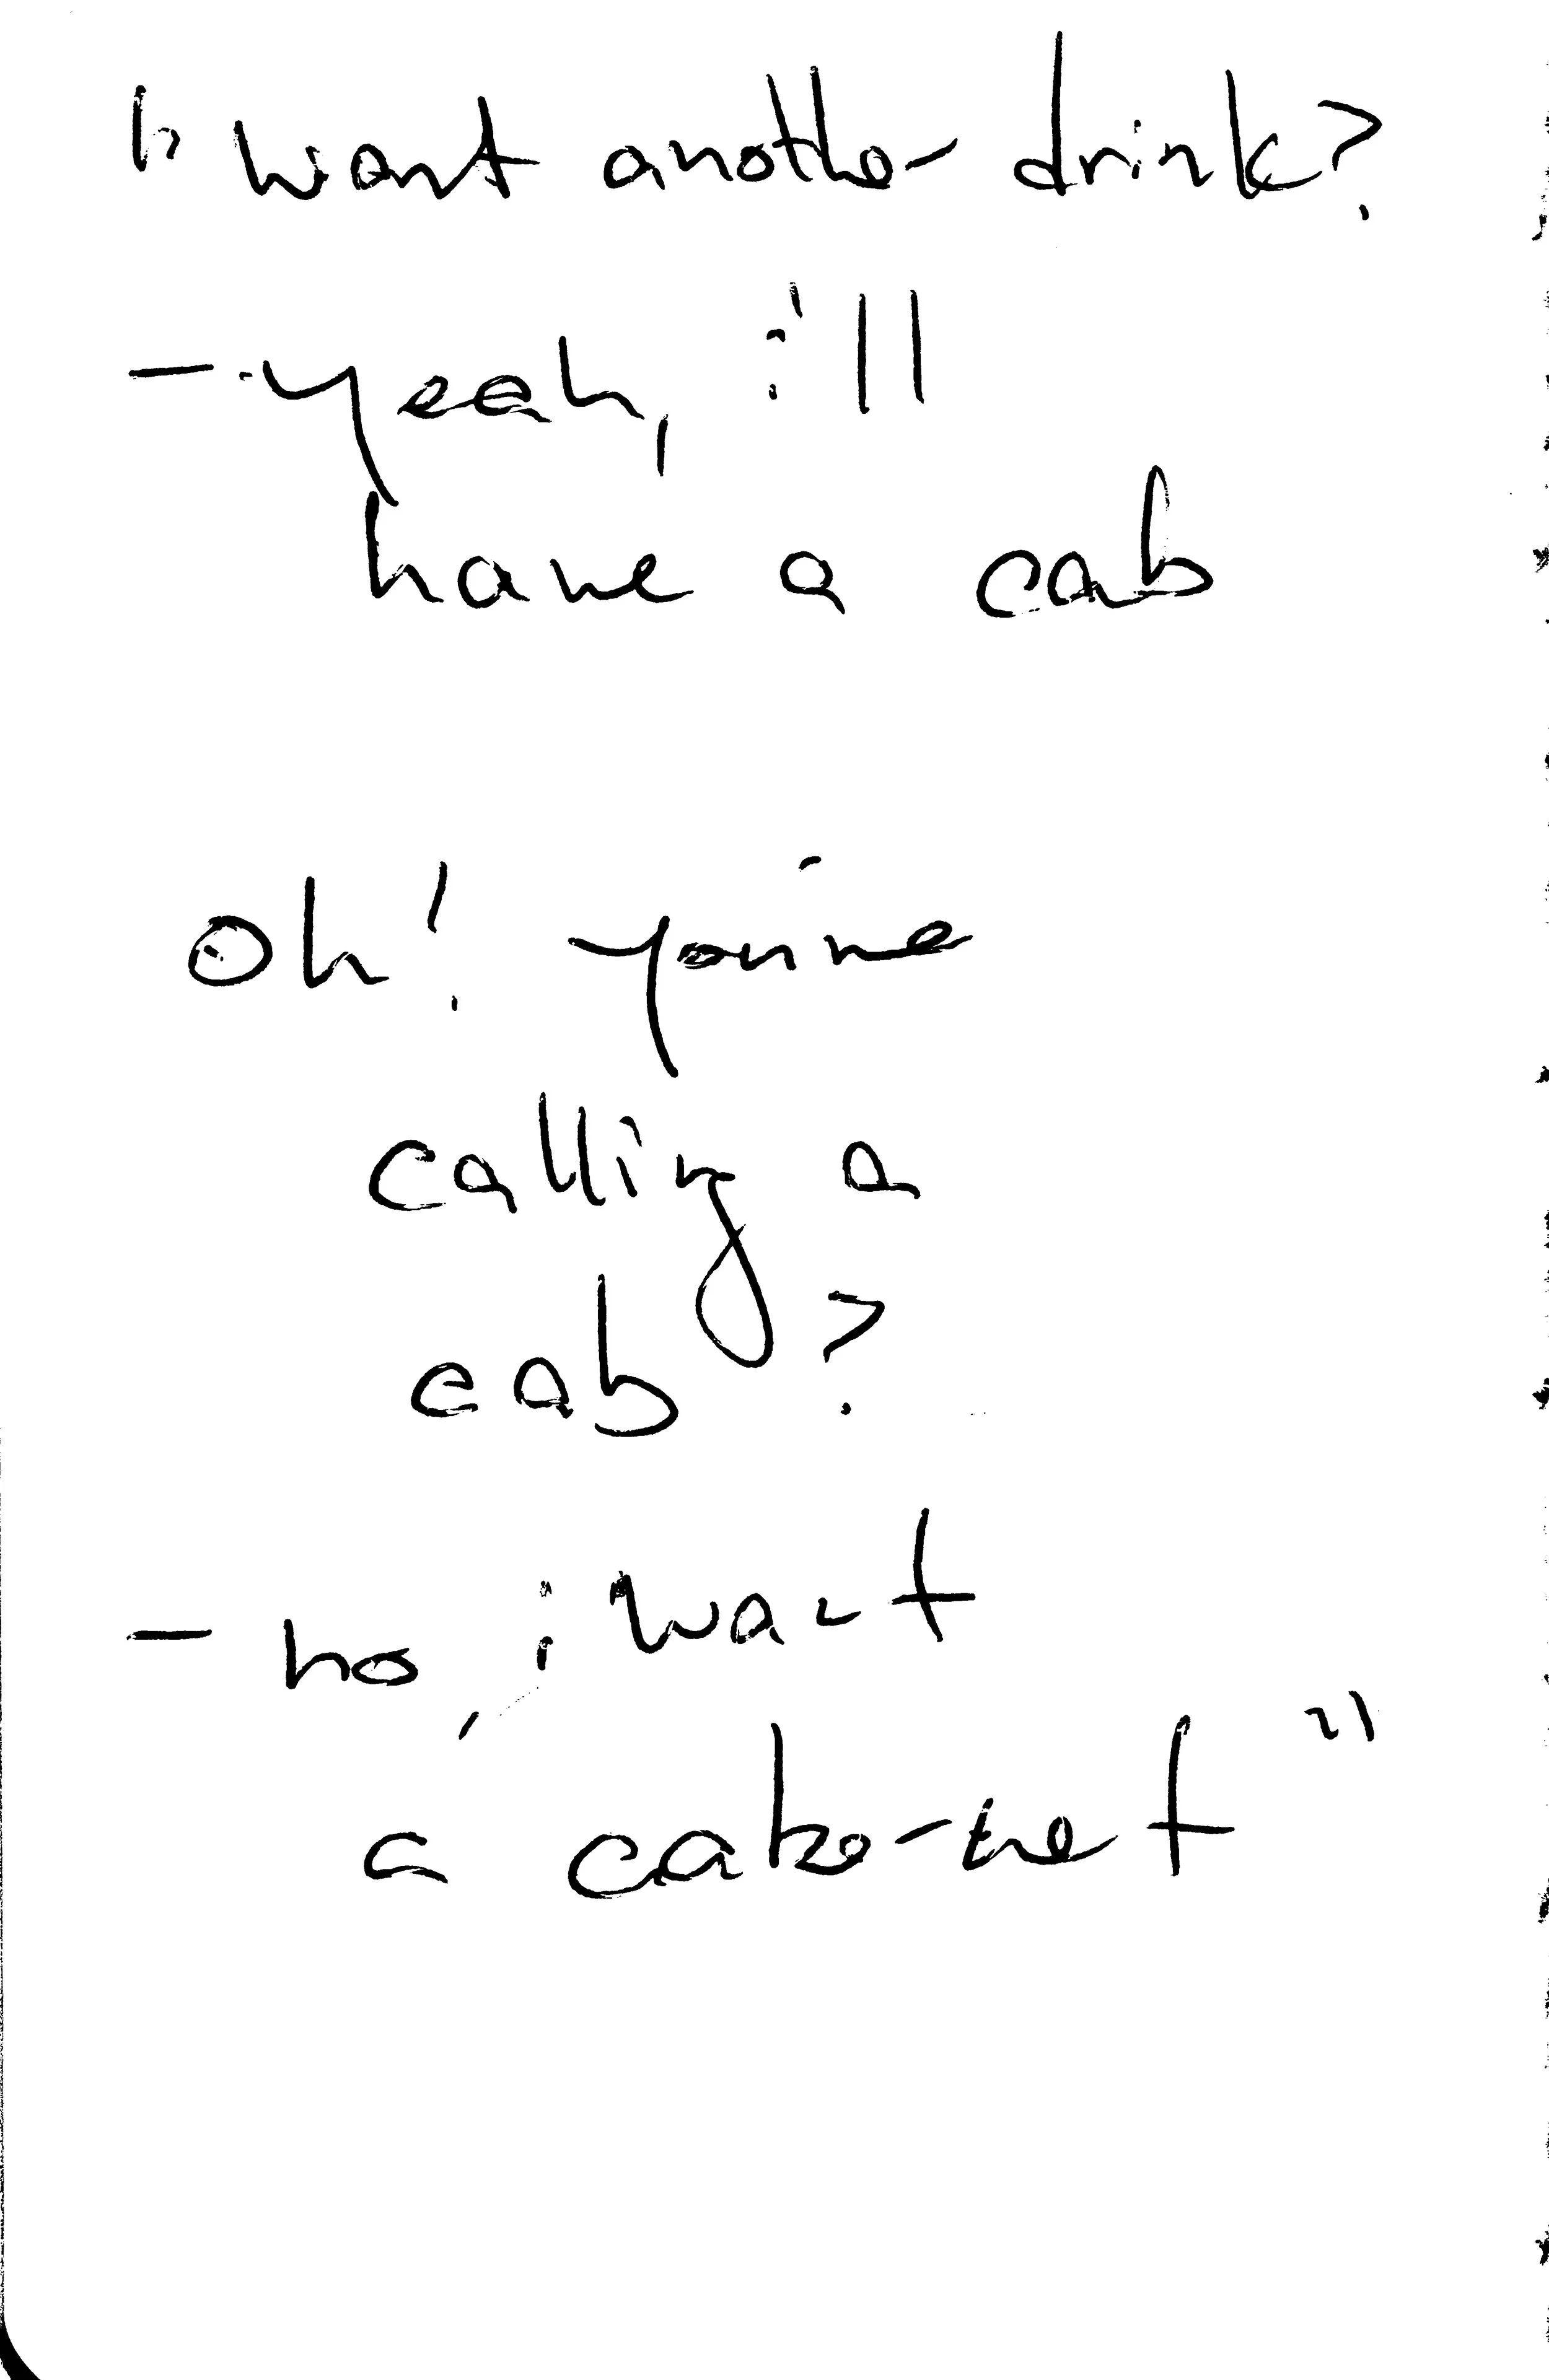 "want another drink?
- yeah, i'll
have a cab
Oh! you're
calling a
cab?
- no, i want
a caber-net"